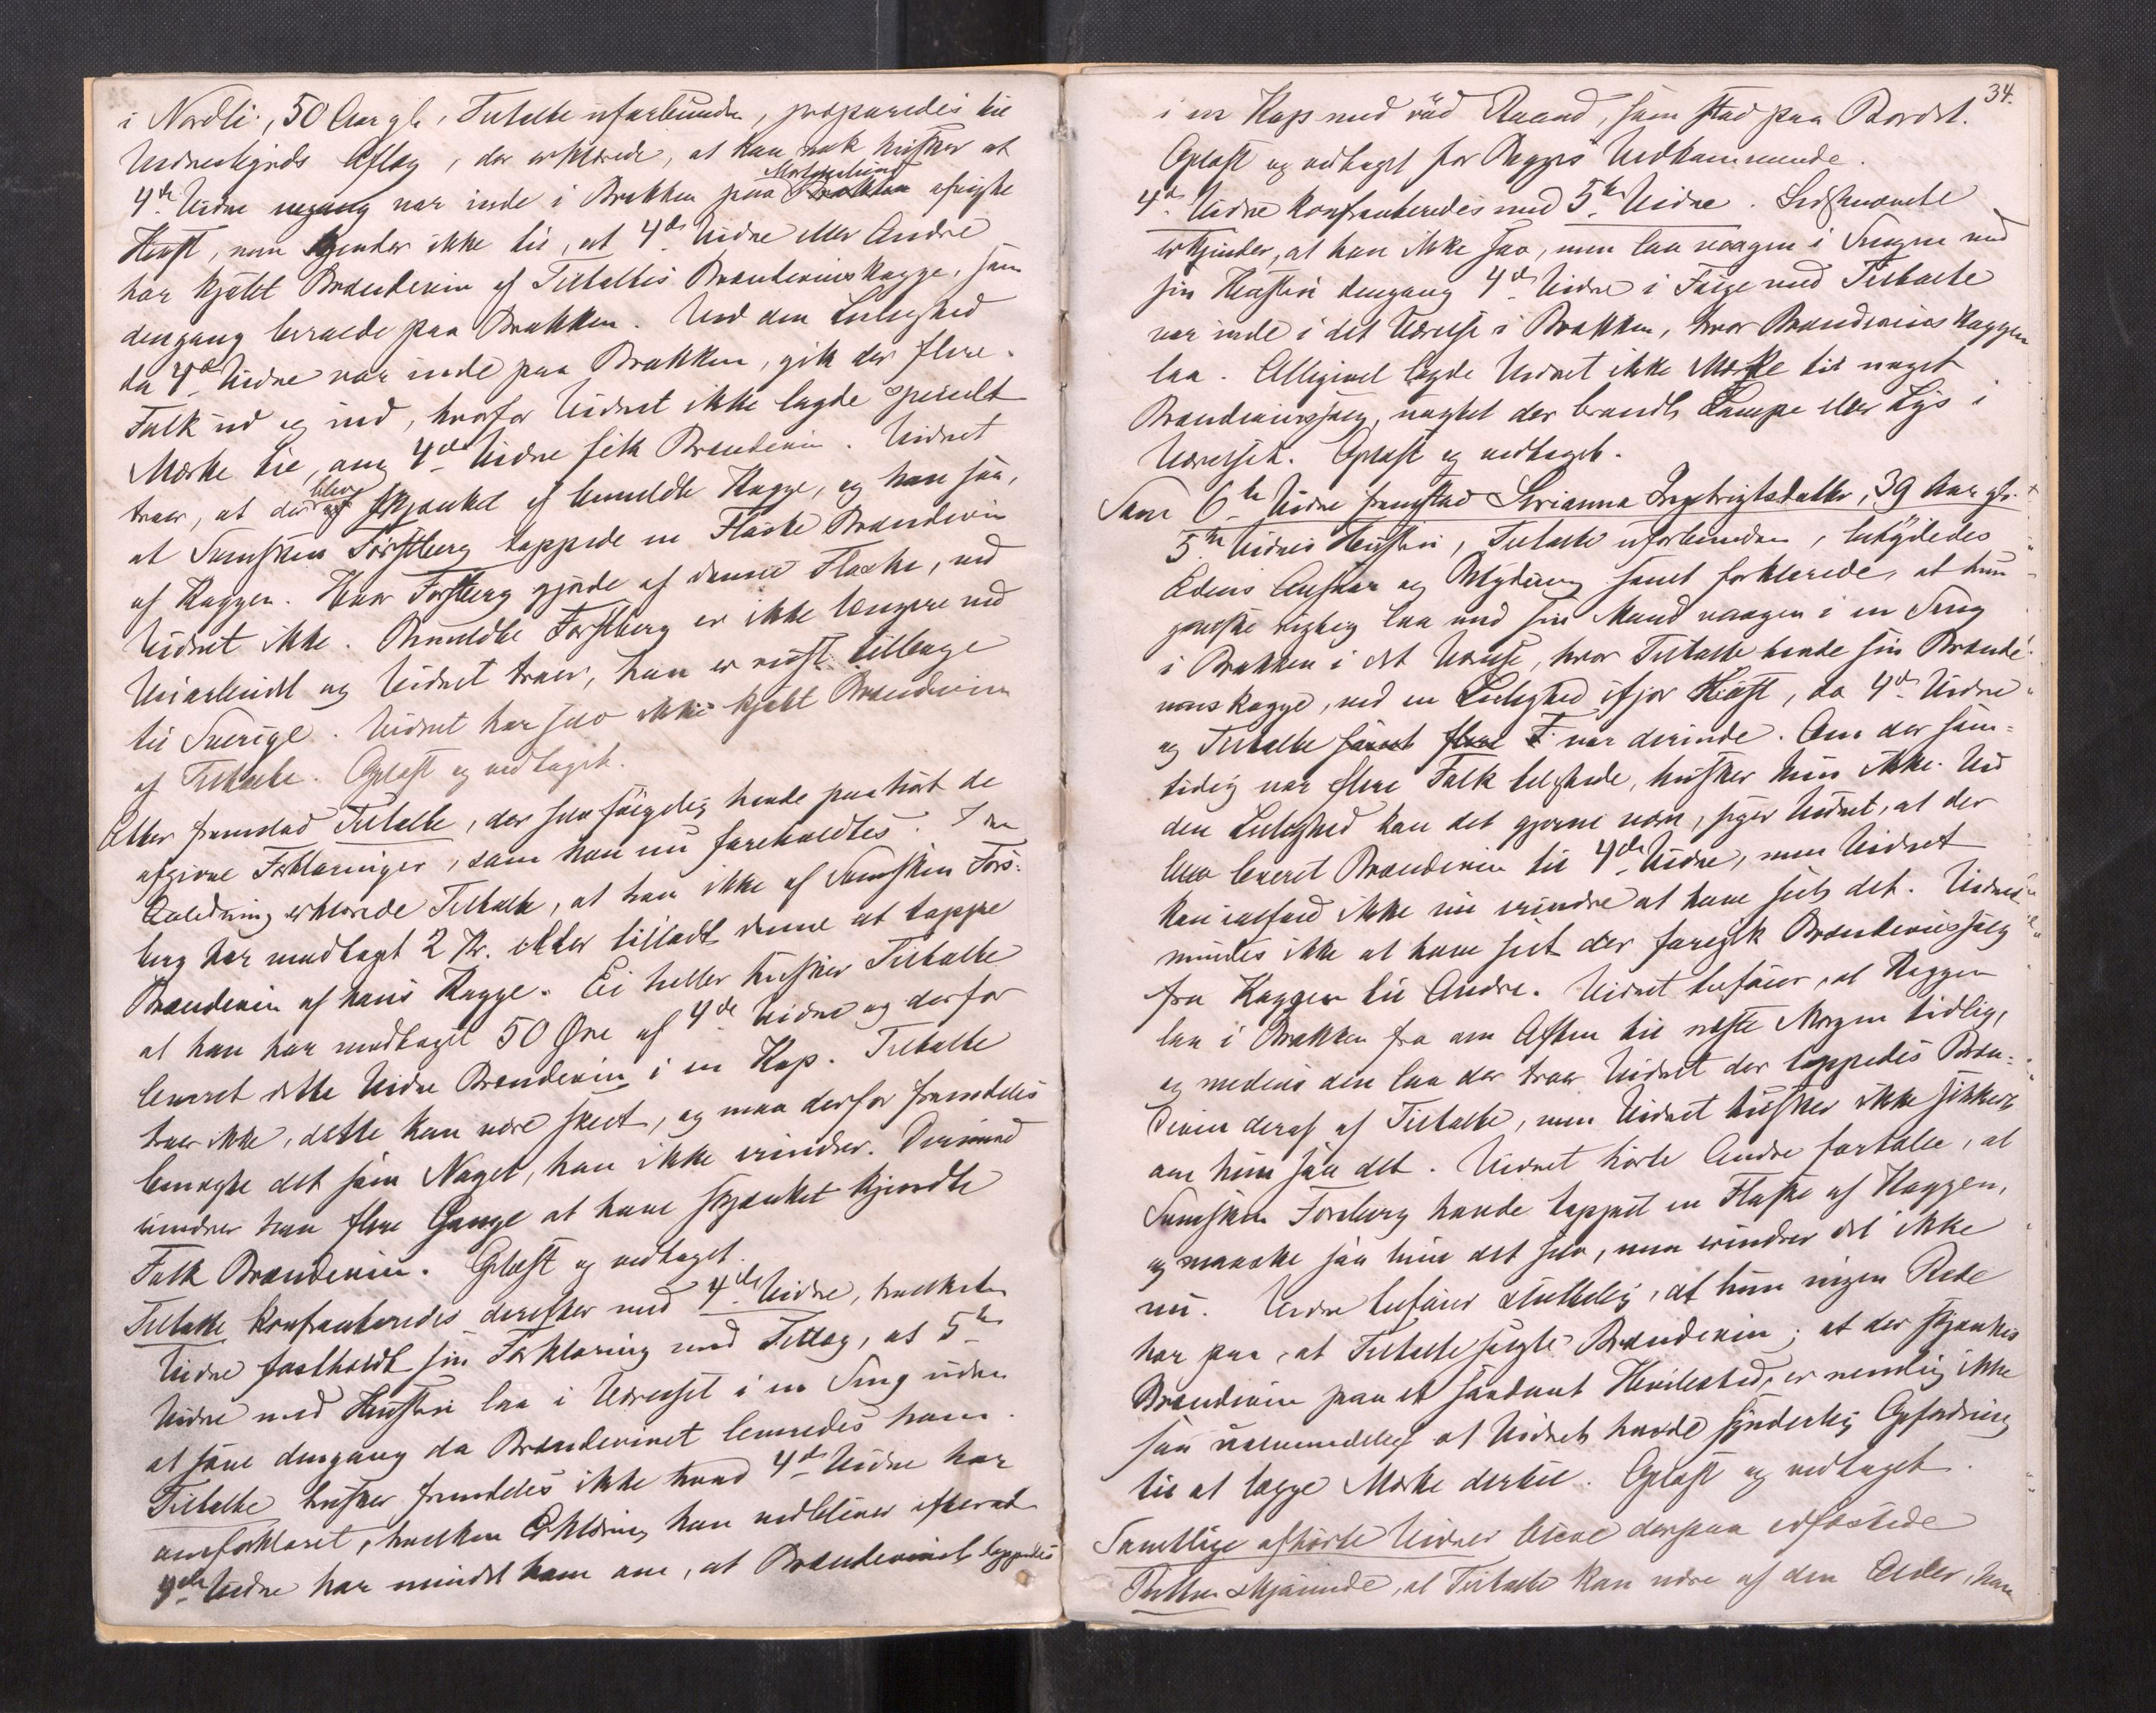 i Nordli, 50 Aar gl., Tiltalte uforbunden, præparedes til
Vidneligeds Aflæg, der erklærede, at han nok husker at
4de Vidne engang var inde i Brakken paa afvigte
Høst, men kjender ikke til, at 4de Vidne eller Andre
har kjøbt Brændevin af Tiltaltes Brændevinskagge, som
dengang beroede paa Brakken. Ved den Leilighed
da 4de Vidne var inde paa Brakken, gik der flere
Folk ud og ind, hvorfor Vidnet ikke lagde specielt
Mærke til, om 4de Vidne fik Brændevin. Vidnet
troer, at der blev skjænket af bemeldte Kagge, og han saa,
at Svensken Forsberg tappede en Flaske Brændevin
af Kaggen. Hvor Forsberg gjorde af denne Flaske, ved
Vidnet ikke. Bemeldte Forsberg er ikke længere ved
Veiarbeidet og Vidnet troer, han er reist tilbage
til Sverige. Vidnet har selv ikke kjøbt Brændevin
af Tiltalte. Oplæst og vedtaget.
Atter fremstod Tiltalte, der selvfølgelig havde paahørt de
afgivne Forklaringer, som han nu foreholdtes. I den
Anledning erklærede Tiltalte, at han ikke af Svensken Fors-
berg har modtaget 2 Kr. eller tilladt denne at tappe
Brændevin af hans Kagge. Ei heller husker Tiltalte
at han har modtaget 50 Øre af 4de Vidne og derfor
leveret dette Vidne Brændevin i en Kop. Tiltalte
troer ikke, dette kan være skeet, og maa derfor fremdeles
benegte det som Noget, han ikke erindrer. Derimod
erindrer han flere Gange at have skjænket kjendte
Folk Brændevin. Oplæst og vedtaget.
Tiltalte konfronteredes derefter med 4de Vidne, hvilket
Vidne fastholdt sin Forklaring med Tillæg, at 5te
Vidne med Hustru laa i Værelset i en Seng uden
at sove dengang da Brændevinet leveredes ham.
Tiltalte husker fremdeles ikke hvad 4de Vidne har
omforklaret, hvilken Erklæring han vedbliver efterat
4de Vidne har mindet ham om, at Brændevinet tappedes
34.
i en Kop med rød Rand, som stod paa Bordet.
Oplæst og vedtaget for Begges Vedkommende.
4de Vidne konfronteredes med 5te Vidne. Sidstnævnte
erkjender, at han ikke sov, men laa vaagen i Sengen med
sin Hustru dengang 4de Vidne i Følge med Tiltalte
var inde i det Værelse i Brakken, hvor Brændevinskaggen
laa. Alligevel lagde Vidnet ikke Mærke til noget
Brændevinssalg, uagtet der brændte Lampe eller Lys i
Værelset. Oplæst og vedtaget.
Som 6te Vidne fremstod Serianna Ingebrigtsdatter, 39 Aar gl.
5te Vidnes Hustru, Tiltalte uforbunden, betydedes
Edens Ansvar og Betydning samt forklarede, at hun
ganske rigtig laa med sin Mand vaagen i en Seng
i Brakken i det Værelse, hvor Tiltalte havde sin Brænde-
vinskagge, ved en Leilighed ifjor Høst, da 4de Vidne
og Tiltalte samt flere F var derinde. Om der sam-
tidig var flere Folk tilstede, husker hun ikke. Ved
den Leilighed kan det gjerne være, siger Vidnet, at der
blev leveret Brændevin til 4de Vidne, men Vidnet
kan ialfald ikke nu erindre at have seet det. Vidnet
mindes ikke at have seet der foregik Brændevinssalg
fra Kaggen til Andre. Vidnet tilføier, at Kaggen
laa i Brakken fra om Aften til næste Morgen tidlig,
og medens den laa der troer Vidnet der tappedes Bræn-
devin deraf af Tiltalte, men Vidnet husker ikke sikkert
om hun saa det. Vidnet hørte Andre fortælle, at
Svensken Forsberg havde tappet en Flaske af Kaggen,
og maaske saa hun det selv, men erindrer det ikke
nu. Vidnet tilføier sluttelig, at hun ingen Rede
har paa, at Tiltalte solgte Brændevin; at der skjænkes
Brændevin paa et saadant Hvilested, er nemlig ikke
saa ualmindeligt at Vidnet havde synderlig Opfordring
til at lægge Mærke dertil. Oplæst og vedtaget.
Samtlige afhørte Vidner bleve derpaa edfæstede
Retten skjønnede, at Tiltalte kan være af den Alder, han